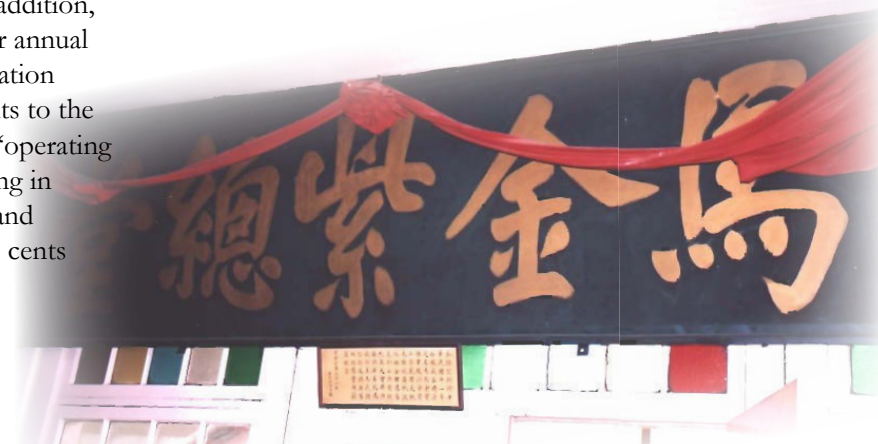 addition,
r annual
ation
ts to the
“operating
ng in
and
cents
馬金紫總堂